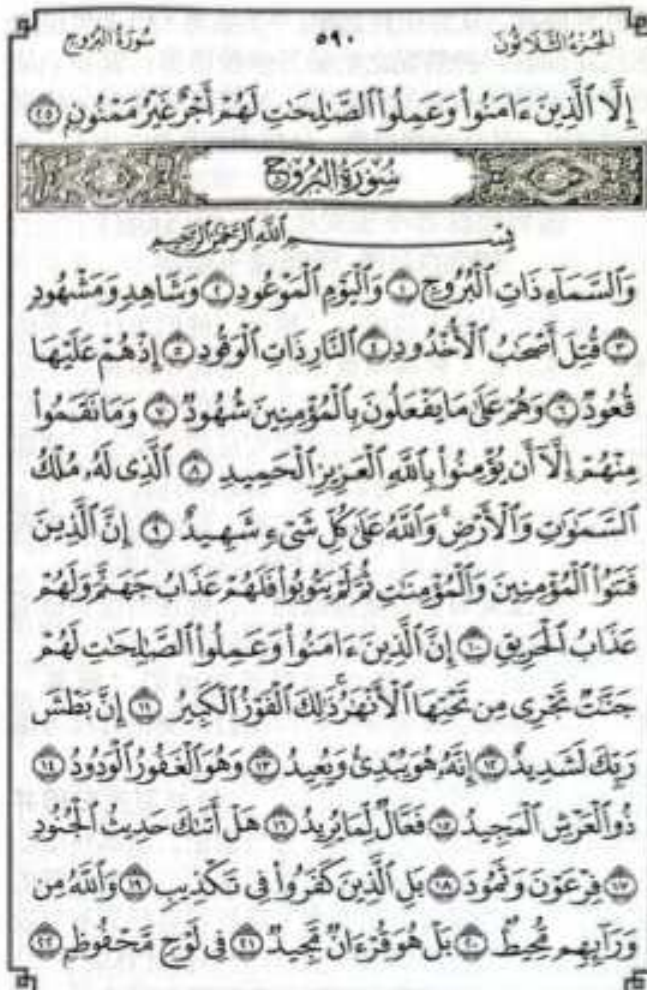 الجزء الثلاثون ٥٩٠ سورة البروج
إِلَّا ٱلَّذِينَ ءَامَنُوا۟ وَعَمِلُوا۟ ٱلصَّٰلِحَٰتِ لَهُمْ أَجْرٌ غَيْرُ مَمْنُونٍۭ ٢٥
سُورَةُ البُرُوجِ
بِسْمِ ٱللَّهِ ٱلرَّحْمَٰنِ ٱلرَّحِيمِ
وَٱلسَّمَآءِ ذَاتِ ٱلْبُرُوجِ ١ وَٱلْيَوْمِ ٱلْمَوْعُودِ ٢ وَشَاهِدٍ وَمَشْهُودٍ
٣ قُتِلَ أَصْحَٰبُ ٱلْأُخْدُودِ ٤ ٱلنَّارِ ذَاتِ ٱلْوَقُودِ ٥ إِذْ هُمْ عَلَيْهَا
قُعُودٌ ٦ وَهُمْ عَلَىٰ مَا يَفْعَلُونَ بِٱلْمُؤْمِنِينَ شُهُودٌ ٧ وَمَا نَقَمُوا۟
مِنْهُمْ إِلَّآ أَن يُؤْمِنُوا۟ بِٱللَّهِ ٱلْعَزِيزِ ٱلْحَمِيدِ ٨ ٱلَّذِى لَهُۥ مُلْكُ
ٱلسَّمَٰوَٰتِ وَٱلْأَرْضِ ۚ وَٱللَّهُ عَلَىٰ كُلِّ شَىْءٍ شَهِيدٌ ٩ إِنَّ ٱلَّذِينَ
فَتَنُوا۟ ٱلْمُؤْمِنِينَ وَٱلْمُؤْمِنَٰتِ ثُمَّ لَمْ يَتُوبُوا۟ فَلَهُمْ عَذَابُ جَهَنَّمَ وَلَهُمْ
عَذَابُ ٱلْحَرِيقِ ١٠ إِنَّ ٱلَّذِينَ ءَامَنُوا۟ وَعَمِلُوا۟ ٱلصَّٰلِحَٰتِ لَهُمْ
جَنَّٰتٌ تَجْرِى مِن تَحْتِهَا ٱلْأَنْهَٰرُ ۚ ذَٰلِكَ ٱلْفَوْزُ ٱلْكَبِيرُ ١١ إِنَّ بَطْشَ
رَبِّكَ لَشَدِيدٌ ١٢ إِنَّهُۥ هُوَ يُبْدِئُ وَيُعِيدُ ١٣ وَهُوَ ٱلْغَفُورُ ٱلْوَدُودُ ١٤
ذُو ٱلْعَرْشِ ٱلْمَجِيدُ ١٥ فَعَّالٌ لِّمَا يُرِيدُ ١٦ هَلْ أَتَىٰكَ حَدِيثُ ٱلْجُنُودِ
١٧ فِرْعَوْنَ وَثَمُودَ ١٨ بَلِ ٱلَّذِينَ كَفَرُوا۟ فِى تَكْذِيبٍ ١٩ وَٱللَّهُ مِن
وَرَآئِهِم مُّحِيطٌۢ ٢٠ بَلْ هُوَ قُرْءَانٌ مَّجِيدٌ ٢١ فِى لَوْحٍ مَّحْفُوظٍۭ ٢٢